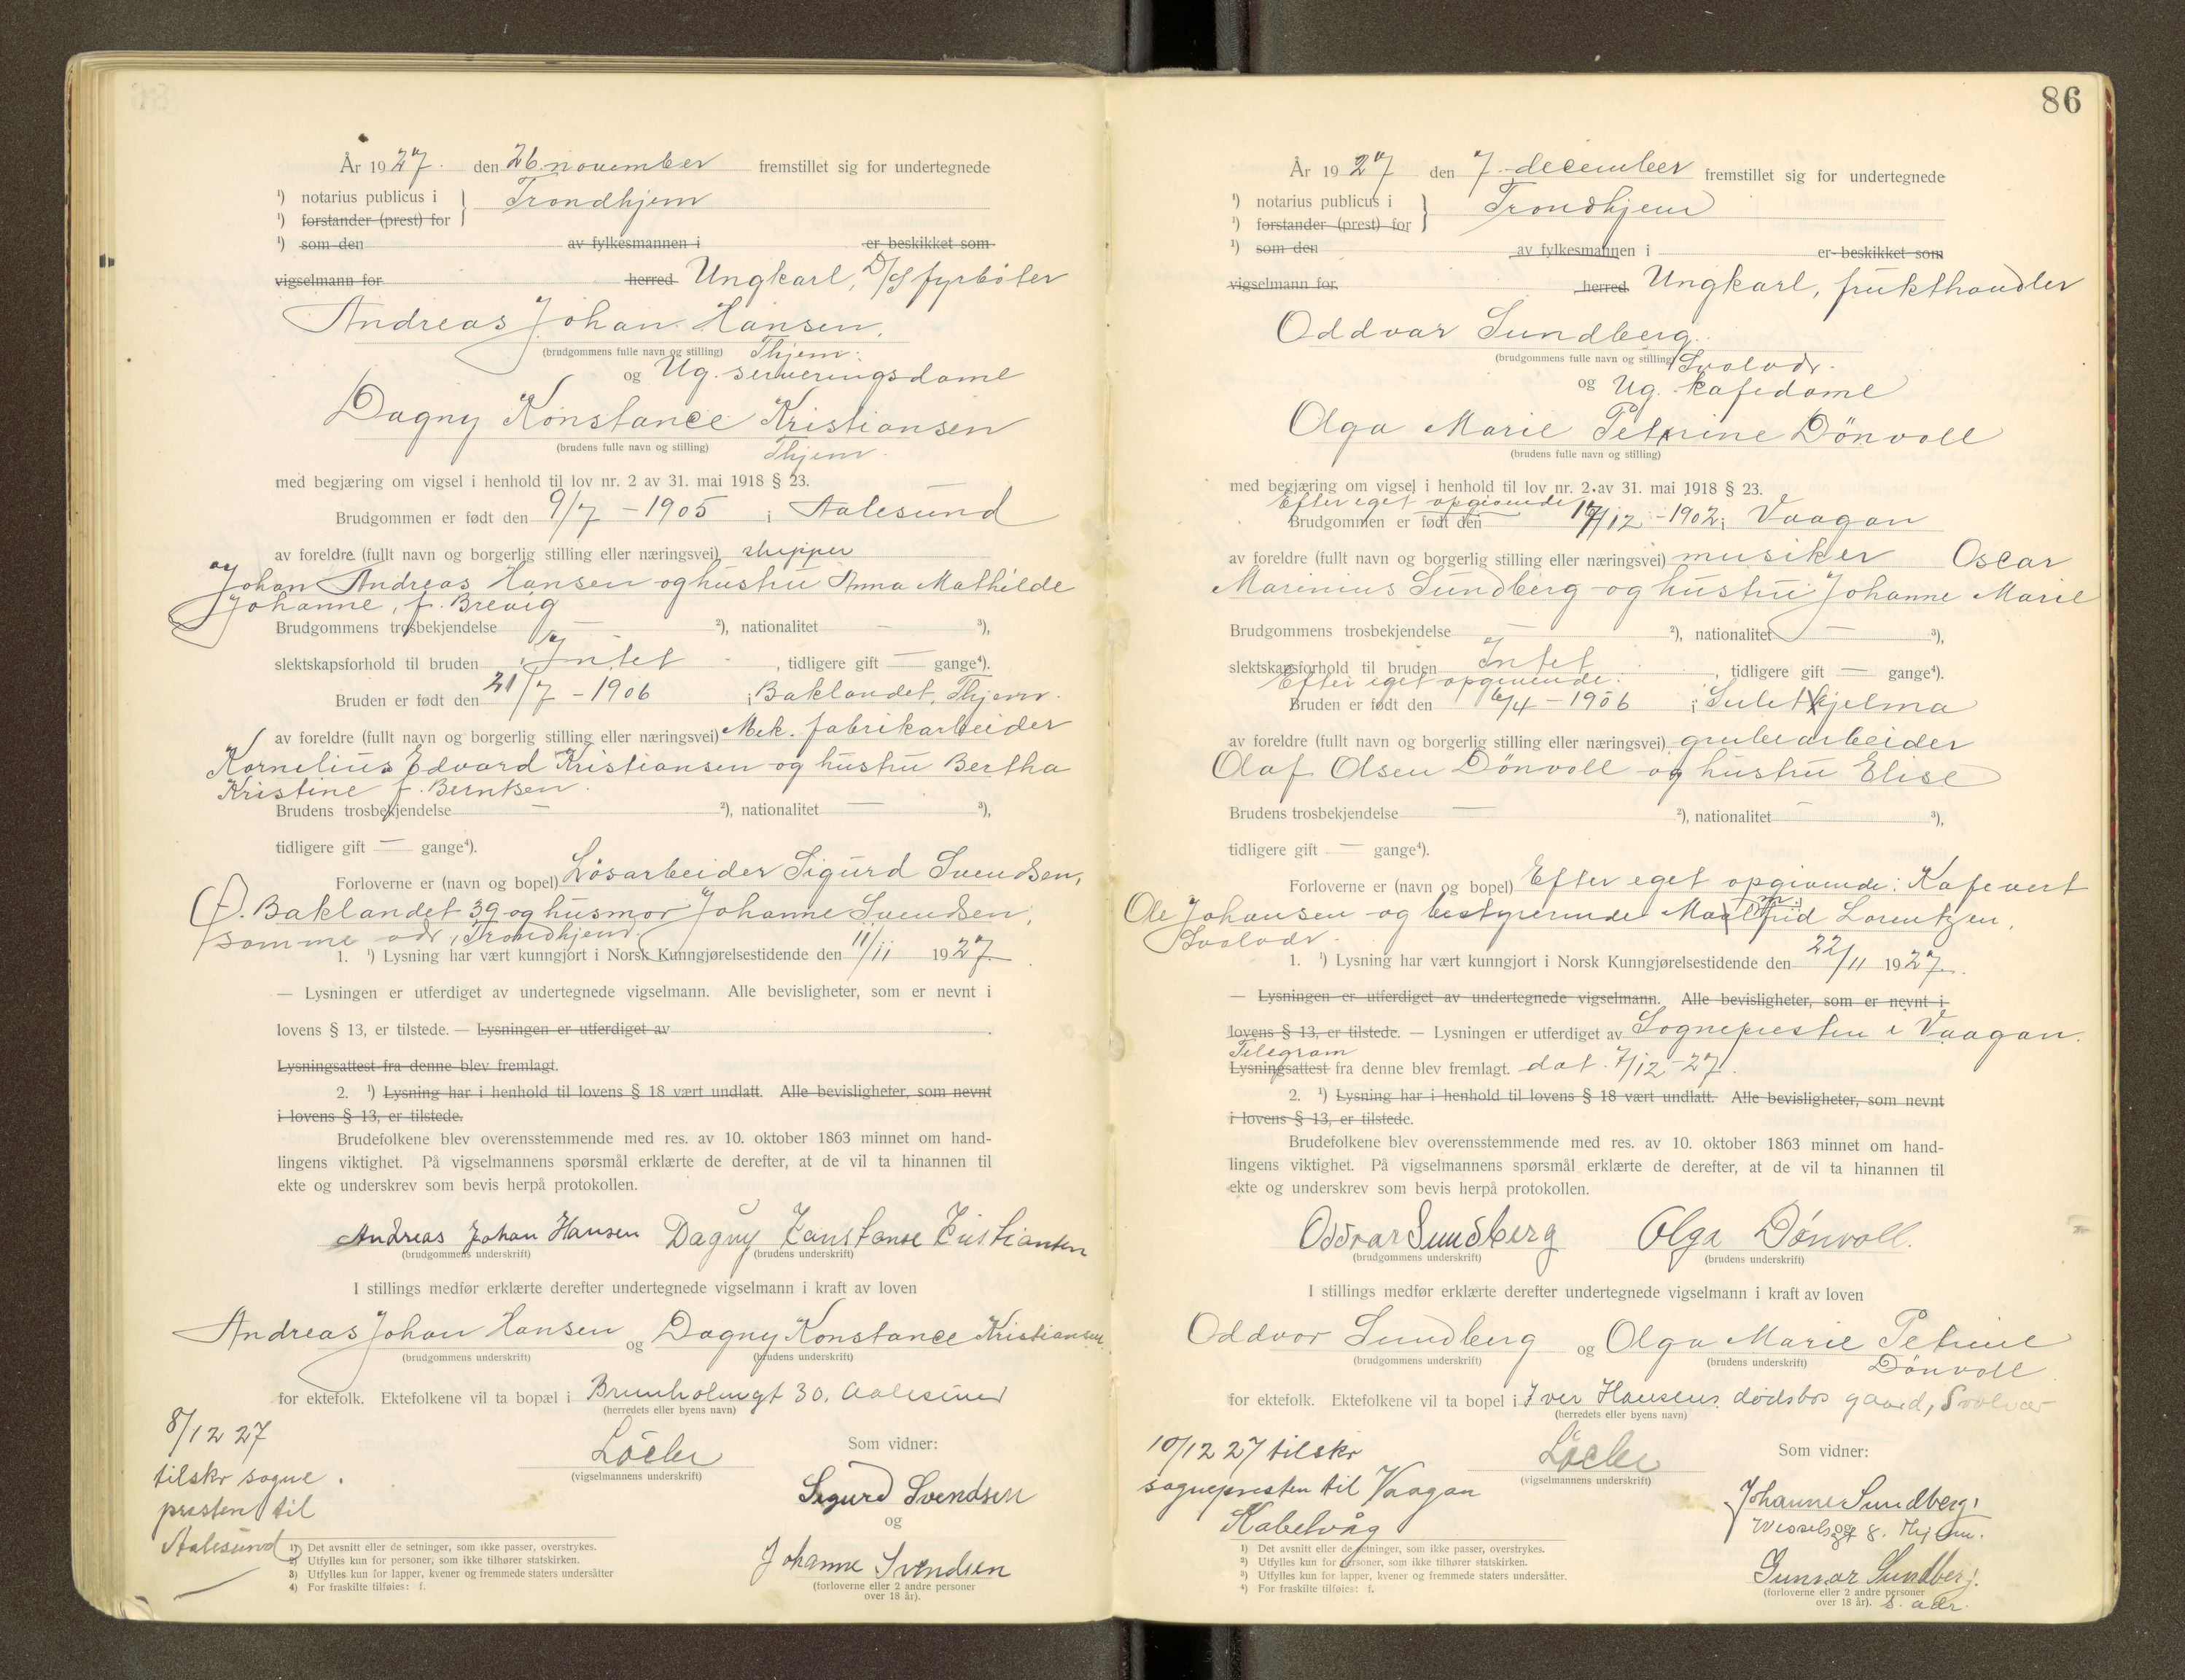 År 1927. den 26 november fremstillet sig for undertegnede
¹) notarius publicus i } Trondhjem
¹) forstander (prest) for
¹) som den av fylkesmannen i er beskikket som
vigselmann for herred Ungkarl, D/S fyrbøter
Andreas Johan Hansen,
(brudgommens fulle navn og stilling) Thjem.
og Ug. serveringsdame
Dagny Konstance Kristiansen
(brudens fulle navn og stilling) Thjem.
med begjæring om vigsel i henhold til lov nr. 2 av 31. mai 1918 § 23.
Brudgommen er født den 9/7 - 1905 i Aalesund
av foreldre (fullt navn og borgerlig stilling eller næringsvei) skipper
Johan Andreas Hansen og hustru Anna Mathilde
Johanne, f. Brevig
Brudgommens trosbekjendelse — ²), nationalitet — ³),
slektskapsforhold til bruden Intet , tidligere gift — gange⁴).
Bruden er født den 21/7 - 1906 i Baklandet, Thjem.
av foreldre (fullt navn og borgerlig stilling eller næringsvei) Mek. fabrikarbeider
Kornelius Edvard Kristiansen og hustru Bertha
Kristine f. Berntsen.
Brudens trosbekjendelse — ²), nationalitet — ³),
tidligere gift — gange⁴).
Forloverne er (navn og bopel) Løsarbeider Sigurd Svendsen,
Ø. Baklandet 39 og husmor Johanne Svendsen,
samme adr, Trondhjem.
1. ¹) Lysning har vært kunngjort i Norsk Kunngjørelsestidende den 11/11 1927.
— Lysningen er utferdiget av undertegnede vigselmann. Alle bevisligheter, som er nevnt i
lovens § 13, er tilstede. — Lysningen er utferdiget av .
Lysningsattest fra denne blev fremlagt.
2. ¹) Lysning har i henhold til lovens § 18 vært undlatt. Alle bevisligheter, som nevnt
i lovens § 13, er tilstede.
Brudefolkene blev overensstemmende med res. av 10. oktober 1863 minnet om hand-
lingens viktighet. På vigselmannens spørsmål erklærte de derefter, at de vil ta hinannen til
ekte og underskrev som bevis herpå protokollen.
Andreas Johan Hansen Dagny Konstanse Kristiansen
(brudgommens underskrift) (brudens underskrift)
I stillings medfør erklærte derefter undertegnede vigselmann i kraft av loven
Andreas Johan Hansen og Dagny Konstance Kristiansen
(brudgommens underskrift) (brudens underskrift)
for ektefolk. Ektefolkene vil ta bopæl i Brunholmgt 30, Aalesund
(herredets eller byens navn)
8/12 27
tilskr sogne
presten til
Aalesund
(vigselmannens underskrift)
Som vidner:
Sigurd Svendsen
og
Johanne Svendsen
(forloverne eller 2 andre personer
over 18 år).
1) Det avsnitt eller de setninger, som ikke passer, overstrykes.
2) Utfylles kun for personer, som ikke tilhører statskirken.
3) Utfylles kun for lapper, kvener og fremmede staters undersåtter
4) For fraskilte tilføies: f.
86
År 1927 den 7. december fremstillet sig for undertegnede
¹) notarius publicus i } Trondhjem
¹) forstander (prest) for
¹) som den av fylkesmannen i er beskikket som
vigselmann for herred Ungkarl, frukthandler
Oddvar Sundberg.
(brudgommens fulle navn og stilling) Svolvær.
og Ug. kafedame
Olga Marie Petrine Dönvoll
(brudens fulle navn og stilling)
med begjæring om vigsel i henhold til lov nr. 2 av 31. mai 1918 § 23.
Efter eget opgivende
Brudgommen er født den /12 - 1902 i Vaagan
av foreldre (fullt navn og borgerlig stilling eller næringsvei) musiker Oscar
Marinius Sundberg og hustru Johanne Marie
Brudgommens trosbekjendelse — ²), nationalitet — ³),
slektskapsforhold til bruden Intet , tidligere gift — gange⁴).
Efter eget opgivende.
Bruden er født den 6/4 - 1906 i Sulitjelma
av foreldre (fullt navn og borgerlig stilling eller næringsvei) grubearbeider
Olaf Olsen Dönvoll og hustru Elise
Brudens trosbekjendelse — ²), nationalitet — ³),
tidligere gift — gange⁴).
Forloverne er (navn og bopel) Efter eget opgivende: Kafevert
Ole Johansen og bestyrerinde Lorentzen,
Svolvær.
1. ¹) Lysning har vært kunngjort i Norsk Kunngjørelsestidende den 22/11 1927.
— Lysningen er utferdiget av undertegnede vigselmann. Alle bevisligheter, som er nevnt i
lovens § 13, er tilstede. — Lysningen er utferdiget av Sognepresten i Vaagan.
Telegram
Lysningsattest fra denne blev fremlagt. dat. 7/12-27.
2. ¹) Lysning har i henhold til lovens § 18 vært undlatt. Alle bevisligheter, som nevnt
i lovens § 13, er tilstede.
Brudefolkene blev overensstemmende med res. av 10. oktober 1863 minnet om hand-
lingens viktighet. På vigselmannens spørsmål erklærte de derefter, at de vil ta hinannen til
ekte og underskrev som bevis herpå protokollen.
Oddvar Sundberg Olga Dönvoll.
(brudgommens underskrift) (brudens underskrift)
I stillings medfør erklærte derefter undertegnede vigselmann i kraft av loven
Oddvar Sundberg og Olga Marie Petrine
(brudgommens underskrift) (brudens underskrift) Dönvoll
for ektefolk. Ektefolkene vil ta bopel i Iver Hansens dødsbos gaard, Svolvær
(herredets eller byens navn)
10/12 27 tilskr
sognepresten til Vaagan
Kabelvåg
(vigselmannens underskrift)
Som vidner:
Johanne Sundberg,
og
Wesselsgt 8. Thjem.
Gunnar Sundberg.
(forloverne eller 2 andre personer
over 18 år). s. adr.
1) Det avsnitt eller de setninger, som ikke passer, overstrykes.
2) Utfylles kun for personer, som ikke tilhører statskirken.
3) Utfylles kun for lapper, kvener og fremmede staters undersåtter.
4) For fraskilte tilføies: f.